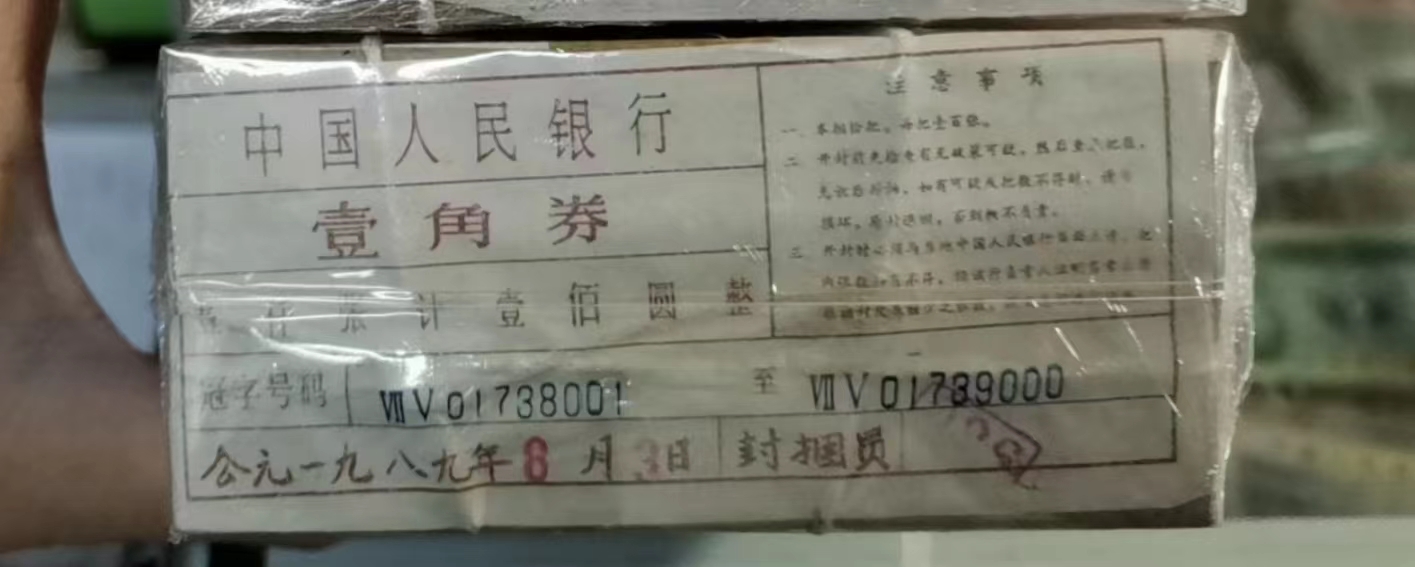 中国人民银行
壹角券
壹仟张计壹佰圆整
冠字号码 ⅧV01738001 至 ⅧV01739000
公元一九八九年8月3日 封捆员
注意事项
一 本捆拾把，每把壹百张。
二 开封前先检查有无破裂可疑，然后
如有可疑或把数不符时，请
原封退回，否则概不负责。
三 开封时必须与当地中国人民银行